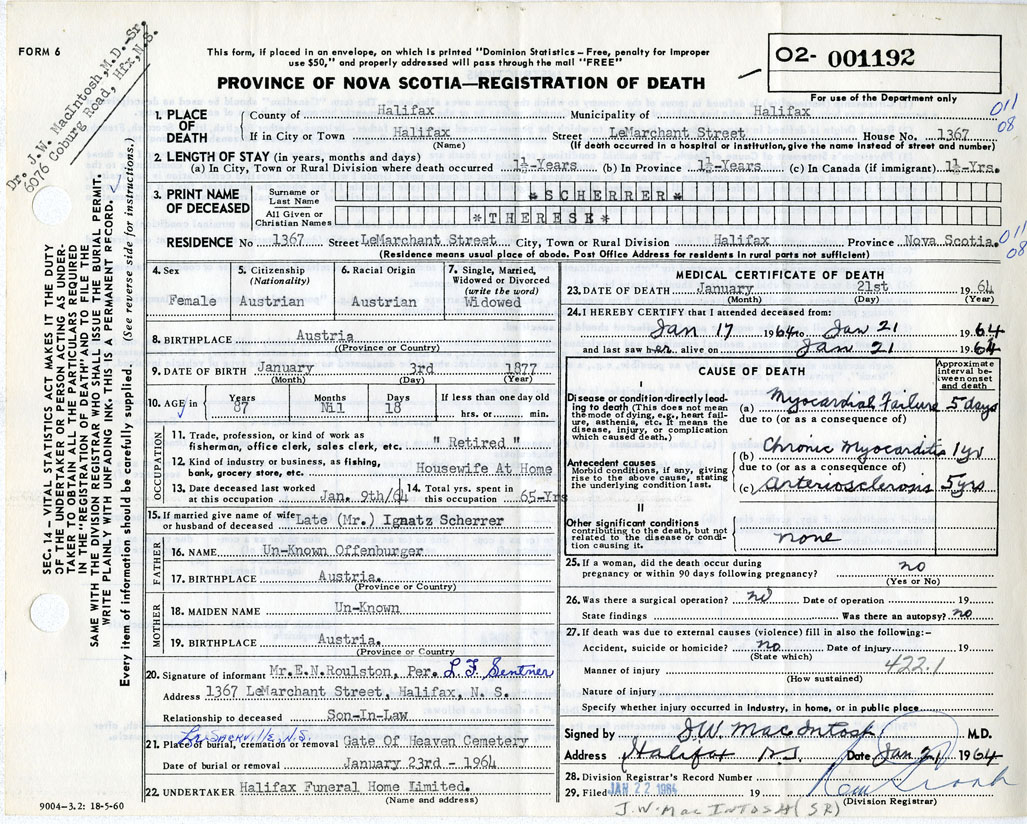 FORM 6
Dr. J.W. MacIntosh, M.D.-Sr.
6076 Coburg Road, Hfx, N.S.
This form, if placed in an envelope, on which is printed "Dominion Statistics – Free, penalty for improper
use $50," and properly addressed will pass through the mail "FREE"
PROVINCE OF NOVA SCOTIA—REGISTRATION OF DEATH
02- 001192
For use of the Department only
SEC. 14 – VITAL STATISTICS ACT MAKES IT THE DUTY
OF THE UNDERTAKER OR PERSON ACTING AS UNDER-
TAKER TO OBTAIN ALL THE PARTICULARS REQUIRED
IN THE "REGISTRATION OF DEATH" AND TO FILE THE
SAME WITH THE DIVISION REGISTRAR WHO SHALL ISSUE THE BURIAL PERMIT.
WRITE PLAINLY WITH UNFADING INK. THIS IS A PERMANENT RECORD.
Every item of information should be carefully supplied. (See reverse side for instructions.)
1. PLACE OF DEATH
County of Halifax Municipality of Halifax
011
08
If in City or Town Halifax Street LeMarchant Street House No. 1367
(Name) (If death occurred in a hospital or institution, give the name instead of street and number)
2. LENGTH OF STAY (in years, months and days)
(a) In City, Town or Rural Division where death occurred 1½-Years (b) In Province 1½-Years (c) In Canada (if immigrant) 1½-Yrs.
3. PRINT NAME OF DECEASED
Surname or Last Name *SCHERRER*
All Given or Christian Names *THERESE*
RESIDENCE No 1367 Street LeMarchant Street City, Town or Rural Division Halifax Province Nova Scotia.
011
08
(Residence means usual place of abode. Post Office Address for residents in rural parts not sufficient)
4. Sex
Female
5. Citizenship
(Nationality)
Austrian
6. Racial Origin
Austrian
7. Single, Married,
Widowed or Divorced
(write the word)
Widowed
8. BIRTHPLACE Austria
((Province or Country)
9. DATE OF BIRTH January 3rd 1877
(Month) (Day) (Year)
10. AGE in
Years
87
Months
Nil
Days
18
If less than one day old
hrs. or min.
OCCUPATION
11. Trade, profession, or kind of work as
fisherman, office clerk, sales clerk, etc. " Retired "
12. Kind of industry or business, as fishing,
bank, grocery store, etc. Housewife At Home
13. Date deceased last worked
at this occupation Jan. 9th/64
14. Total yrs. spent in
this occupation 65-Yrs
15. If married give name of wife
or husband of deceased Late (Mr.) Ignatz Scherrer
FATHER
16. NAME Un-Known Offenburger
17. BIRTHPLACE Austria.
(Province or Country)
MOTHER
18. MAIDEN NAME Un-Known
19. BIRTHPLACE Austria.
(Province or Country)
20. Signature of informant Mr. E.N. Roulston, Per. L F Sentner
Address 1367 LeMarchant Street, Halifax, N. S.
Relationship to deceased Son-In-Law
Lr. Sackville, N.S.
21. Place of burial, cremation or removal Gate Of Heaven Cemetery
Date of burial or removal January 23rd - 1964
22. UNDERTAKER Halifax Funeral Home Limited.
(Name and address)
9004-3.2: 18-5-60
MEDICAL CERTIFICATE OF DEATH
23. DATE OF DEATH January 21st 1964
(Month) (Day) (Year)
24. I HEREBY CERTIFY that I attended deceased from:
Jan 17 1964 to Jan 21 1964
and last saw her alive on Jan 21 1964
CAUSE OF DEATH
Approximate
interval be-
tween onset
and death
I
Disease or condition directly lead-
ing to death (This does not mean
the mode of dying, e.g., heart fail-
ure, asthenia, etc. It means the
disease, injury, or complication
which caused death.)
(a) Myocardial Failure 5 days
due to (or as a consequence of)
Antecedent causes
Morbid conditions, if any, giving
rise to the above cause, stating the
underlying condition last.
(b) Chronic Myocarditis 1 yr
due to (or as a consequence of)
(c) Arteriosclerosis 5 yrs
II
Other significant conditions
contributing to the death, but not
related to the disease or condi-
tion causing it.
none
25. If a woman, did the death occur during
pregnancy or within 90 days following pregnancy? no
(Yes or No)
26. Was there a surgical operation? no Date of operation 19
State findings Was there an autopsy? no
27. If death was due to external causes (violence) fill in also the following:–
Accident, suicide or homicide? no Date of injury 19
(State which)
422.1
Manner of injury
(How sustained)
Nature of injury
Specify whether injury occurred in industry, in home, or in public place
Signed by J.W. MacIntosh M.D.
Address Halifax N.S. Date Jan 21 1964
28. Division Registrar's Record Number
29. Filed JAN 22 1964 19
(Division Registrar)
J. W. MacINTOSH (SR)